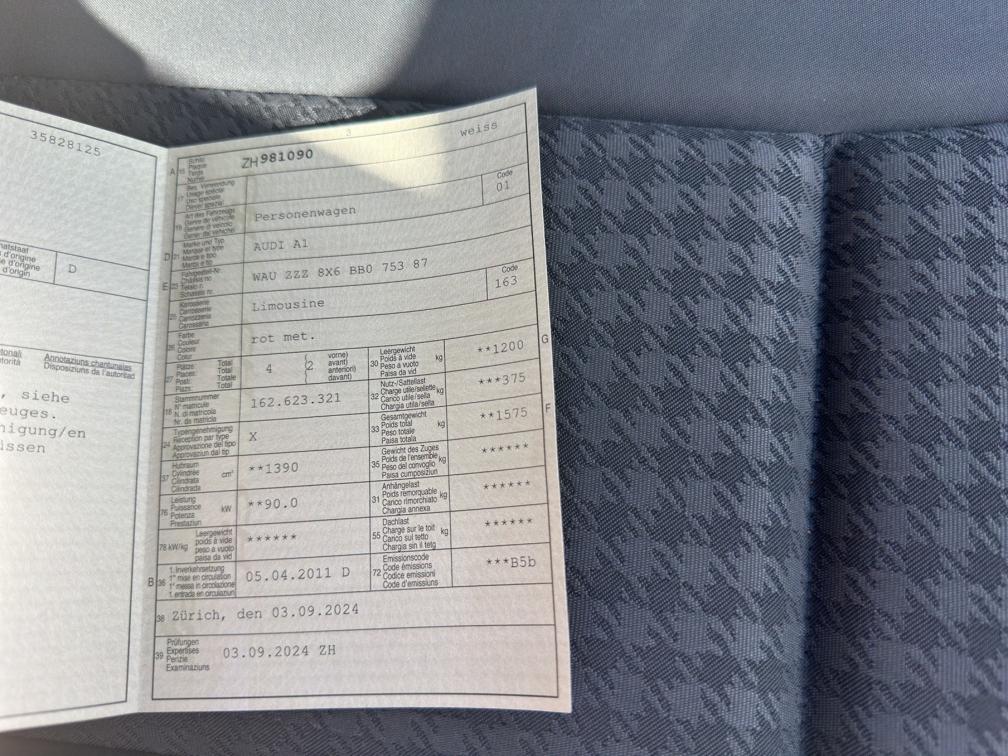 35828125
D
Annotaziuns chantunalas
Disposiziuns da l'autoritad
, siehe
euges.
nigung/en
üssen
3
weiss
A 15 Schild
Plaque
Targa
Numer
ZH 981090
17 Bes. Verwendung
Usage spécial
Uso speciale
Diever spezial
Code
01
19 Art des Fahrzeugs
Genre de véhicule
Genere di veicolo
Gener dal vehichel
Personenwagen
D 21 Marke und Typ
Marque et type
Marca e tipo
Marca e tip
AUDI A1
E 23 Fahrgestell-Nr.
Châssis no
Telaio n.
Schassis nr.
WAU ZZZ 8X6 BB0 753 87
25 Karosserie
Carrosserie
Carrozzeria
Carossaria
Limousine
Code
163
26 Farbe
Couleur
Colore
Colur
rot met.
27 Plätze: Total
Places: Total
Posti: Totale
Plazs: Total
4
(2 vorne)
avant)
anteriori)
davant)
30 Leergewicht
Poids à vide kg
Peso a vuoto
Paisa da vid
**1200
G
18 Stammnummer
N° matricule
N. di matricola
Nr. da matricla
162.623.321
32 Nutz-/Sattellast
Charge utile/sellette kg
Carico utile/sella
Chargia utila/sella
***375
24 Typengenehmigung
Réception par type
Approvazione del tipo
Approvaziun dal tip
X
33 Gesamtgewicht
Poids total kg
Peso totale
Paisa totala
**1575
F
37 Hubraum
Cylindrée cm³
Cilindrata
Cilindrada
**1390
35 Gewicht des Zuges
Poids de l'ensemble kg
Peso del convoglio
Paisa cumposiziun
******
76 Leistung
Puissance kW
Potenza
Prestaziun
**90.0
31 Anhängelast
Poids remorquable kg
Carico rimorchiato
Chargia annexa
******
78 kW/kg Leergewicht
poids à vide
peso a vuoto
paisa da vid
******
55 Dachlast
Charge sur le toit kg
Carico sul tetto
Chargia sin il tetg
******
B 36 1. Inverkehrsetzung
1re mise en circulation
1a messa in circolazione
1. entrada en circulaziun
05.04.2011 D
72 Emissionscode
Code émissions
Codice emissioni
Code d'emissiuns
***B5b
38 Zürich, den 03.09.2024
39 Prüfungen
Expertises
Perizie
Examinaziuns
03.09.2024 ZH